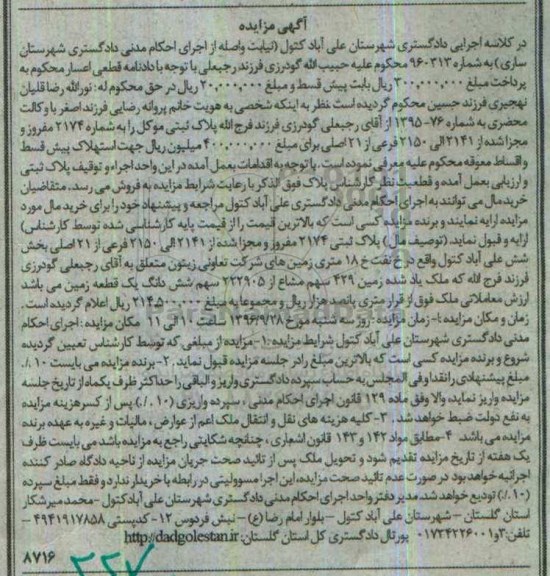 آگهی مزایده
در کلاسه اجرایی دادگستری شهرستان علی آباد کتول (نیابت واصله از اجرای احکام مدنی دادگستری شهرستان
ساری) به شماره ۹۶۰۳۱۳ محکوم علیه حبیب الله گودرزی فرزند رجبعلی با توجه با دادنامه قطعی اعسار محکوم به
پرداخت مبلغ ۳۰۰,۰۰۰,۰۰۰ ریال بابت پیش قسط و مبلغ ۲۰,۰۰۰,۰۰۰ ریال در حق محکوم له: نورالله رضا قلیان
نهجیری فرزند حسین محکوم گردیده است. نظر به اینکه شخصی به هویت خانم پروانه رضایی فرزند اصغر با وکالت
محضری به شماره ۷۶-۱۳۹۵ از آقای رجبعلی گودرزی فرزند فرج الله پلاک ثبتی موکل را به شماره ۲۱۷۴ مفروز و
مجزا شده از ۲۱۴۱ الی ۲۱۵۰ فرعی از ۲۱ اصلی برای مبلغ ۴۰۰,۰۰۰,۰۰۰ میلیون ریال جهت استهلاک پیش قسط
و اقساط معوقه محکوم علیه معرفی نموده است. با توجه به اقدامات بعمل آمده در این واحد اجراء و توقیف پلاک ثبتی
و ارزیابی بعمل آمده و قطعیت نظر کارشناس پلاک فوق الذکر با رعایت شرایط مزایده به فروش می رسد. متقاضیان
خرید مال می توانند به اجرای احکام مدنی دادگستری علی آباد کتول مراجعه و پیشنهاد خود را برای خرید مال مورد
مزایده ارایه نمایند و برنده مزایده کسی است که بالاترین قیمت را از قیمت پایه کارشناسی شده توسط کارشناس)
ارایه و قبول نماید. (توصیف مال) پلاک ثبتی ۲۱۷۴ مفروز و مجزا شده از ۲۱۴۱ الی ۲۱۵۰ فرعی از ۲۱ اصلی بخش
شش علی آباد کتول واقع در خ نفت خ ۱۸ متری زمین های شرکت تعاونی زیتون متعلق به آقای رجبعلی گودرزی
فرزند فرج الله که ملک یاد شده زمین ۴۲۹ سهم مشاع از ۲۲۲۹۰۵ سهم شش دانگ یک قطعه زمین می باشد
ارزش معاملاتی ملک فوق از قرار متری پانصد هزار ریال و مجموعا به مبلغ ۲۱۴,۵۰۰,۰۰۰ ریال اعلام گردیده است.
زمان و مکان مزایده :- زمان مزایده : روز سه شنبه مورخ ۱۳۹۶/۹/۲۸ ساعت ۱۰ الی ۱۱ مکان مزایده : اجرای احکام
مدنی دادگستری شهرستان علی آباد کتول شرایط مزایده :۱- مزایده از مبلغی که توسط کارشناس تعیین گردیده
شروع و برنده مزایده کسی است که بالاترین مبلغ را در جلسه مزایده قبول نماید. ۲- برنده مزایده می بایست ۱۰٪
مبلغ پیشنهادی را نقدا و فی المجلس به حساب سپرده دادگستری واریز و الباقی را حداکثر ظرف یکماه از تاریخ جلسه
مزایده واریز نماید، والا وفق ماده ۱۲۹ قانون اجرای احکام مدنی ، سپرده واریزی (۱۰٪) پس از کسر هزینه مزایده
به نفع دولت ضبط خواهد شد. ۳- کلیه هزینه های نقل و انتقال ملک اعم از عوارض ، مالیات و غیره به عهده برنده
مزایده می باشد. ۴-مطابق مواد ۱۴۲ و ۱۴۳ قانون اشعاری ، چنانچه شکایتی راجع به مزایده باشد می بایست ظرف
یک هفته از تاریخ مزایده تقدیم شود و تحویل ملک پس از تائید صحت جریان مزایده از ناحیه دادگاه صادر کننده
اجرائیه خواهد بود. در صورت عدم تائید صحت مزایده، این اجرا مسوولیتی در رابطه با خریدار ندارد و فقط مبلغ سپرده
(۱۰٪) تودیع خواهد شد. مدیر دفتر واحد اجرای احکام مدنی دادگستری شهرستان علی آباد کتول - محمد میرشکار
استان گلستان - شهرستان علی آباد کتول - بلوار امام رضا (ع) - نبش فردوس ۱۲ - کدپستی ۴۹۴۱۹۱۷۸۵۸ -
تلفن: ۳ و ۰۱۷۳۴۲۲۶۰۰۱ پورتال دادگستری کل استان گلستان: http://dadgolestan.ir
۸۷۱۶
۲۲۷